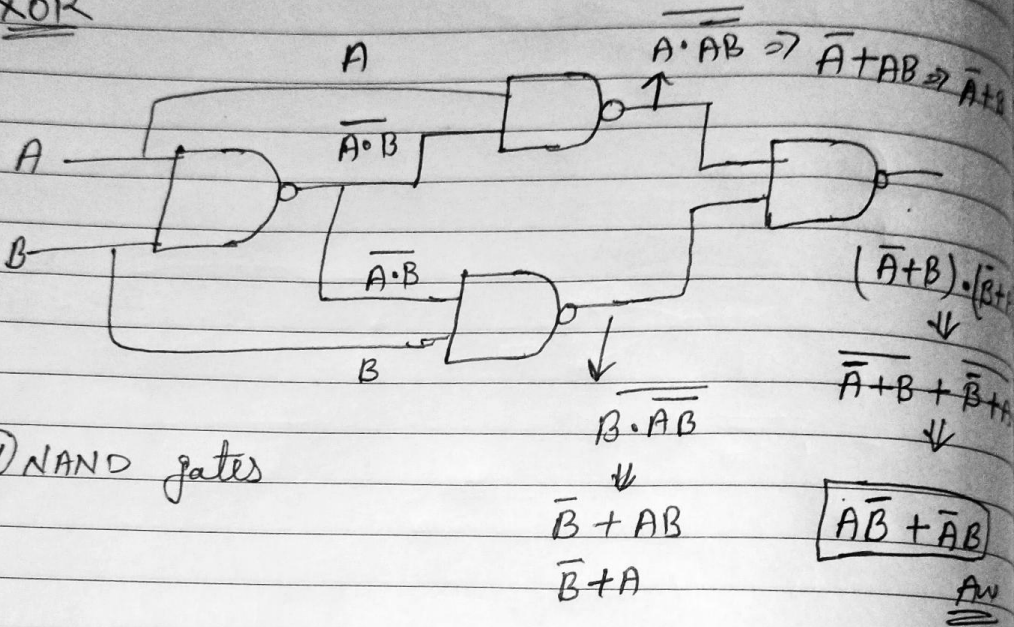 XOR
A
A·A̅B̅ ⇒ A̅+AB ⇒ A̅+B
A
A̅·̅B̅
B
A̅·̅B̅
B
(A̅+B)·(B̅+
⇓
B·A̅B̅
A̅̅+B + B̅̅+A
⇓
⇓
NAND gates
B̅ + AB
AB̅ + A̅B
B̅+A